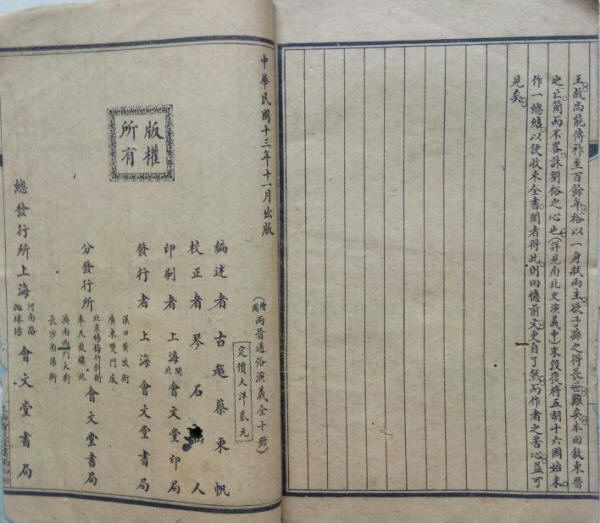 王故尚能傳祚至百餘年裕以一身弑兩主欲子孫之得長世難矣本回敘東晉
之亡簡而不畧誅劉裕之心也(詳見南北史演義中)末段復將五胡十六國始末
作一總結以便收束全書閱者得此則回憶前文更自了然而作者之苦心益可
見矣
中華民國十三年十一月出版
版權
所有
(繪圖兩晉通俗演義全十冊)
定價大洋貳元
編述者 古越蔡東帆
校正者 琴石人
印刷者 上海閘北會文堂印局
發行者 上海會文堂書局
分發行所
漢口黃陂街
廣東雙門底
北京楊梅竹斜街
奉天鼓樓北
濟南西門大街
長沙南陽街
會文堂書局
總發行所上海
河南路
拋球場
會文堂書局